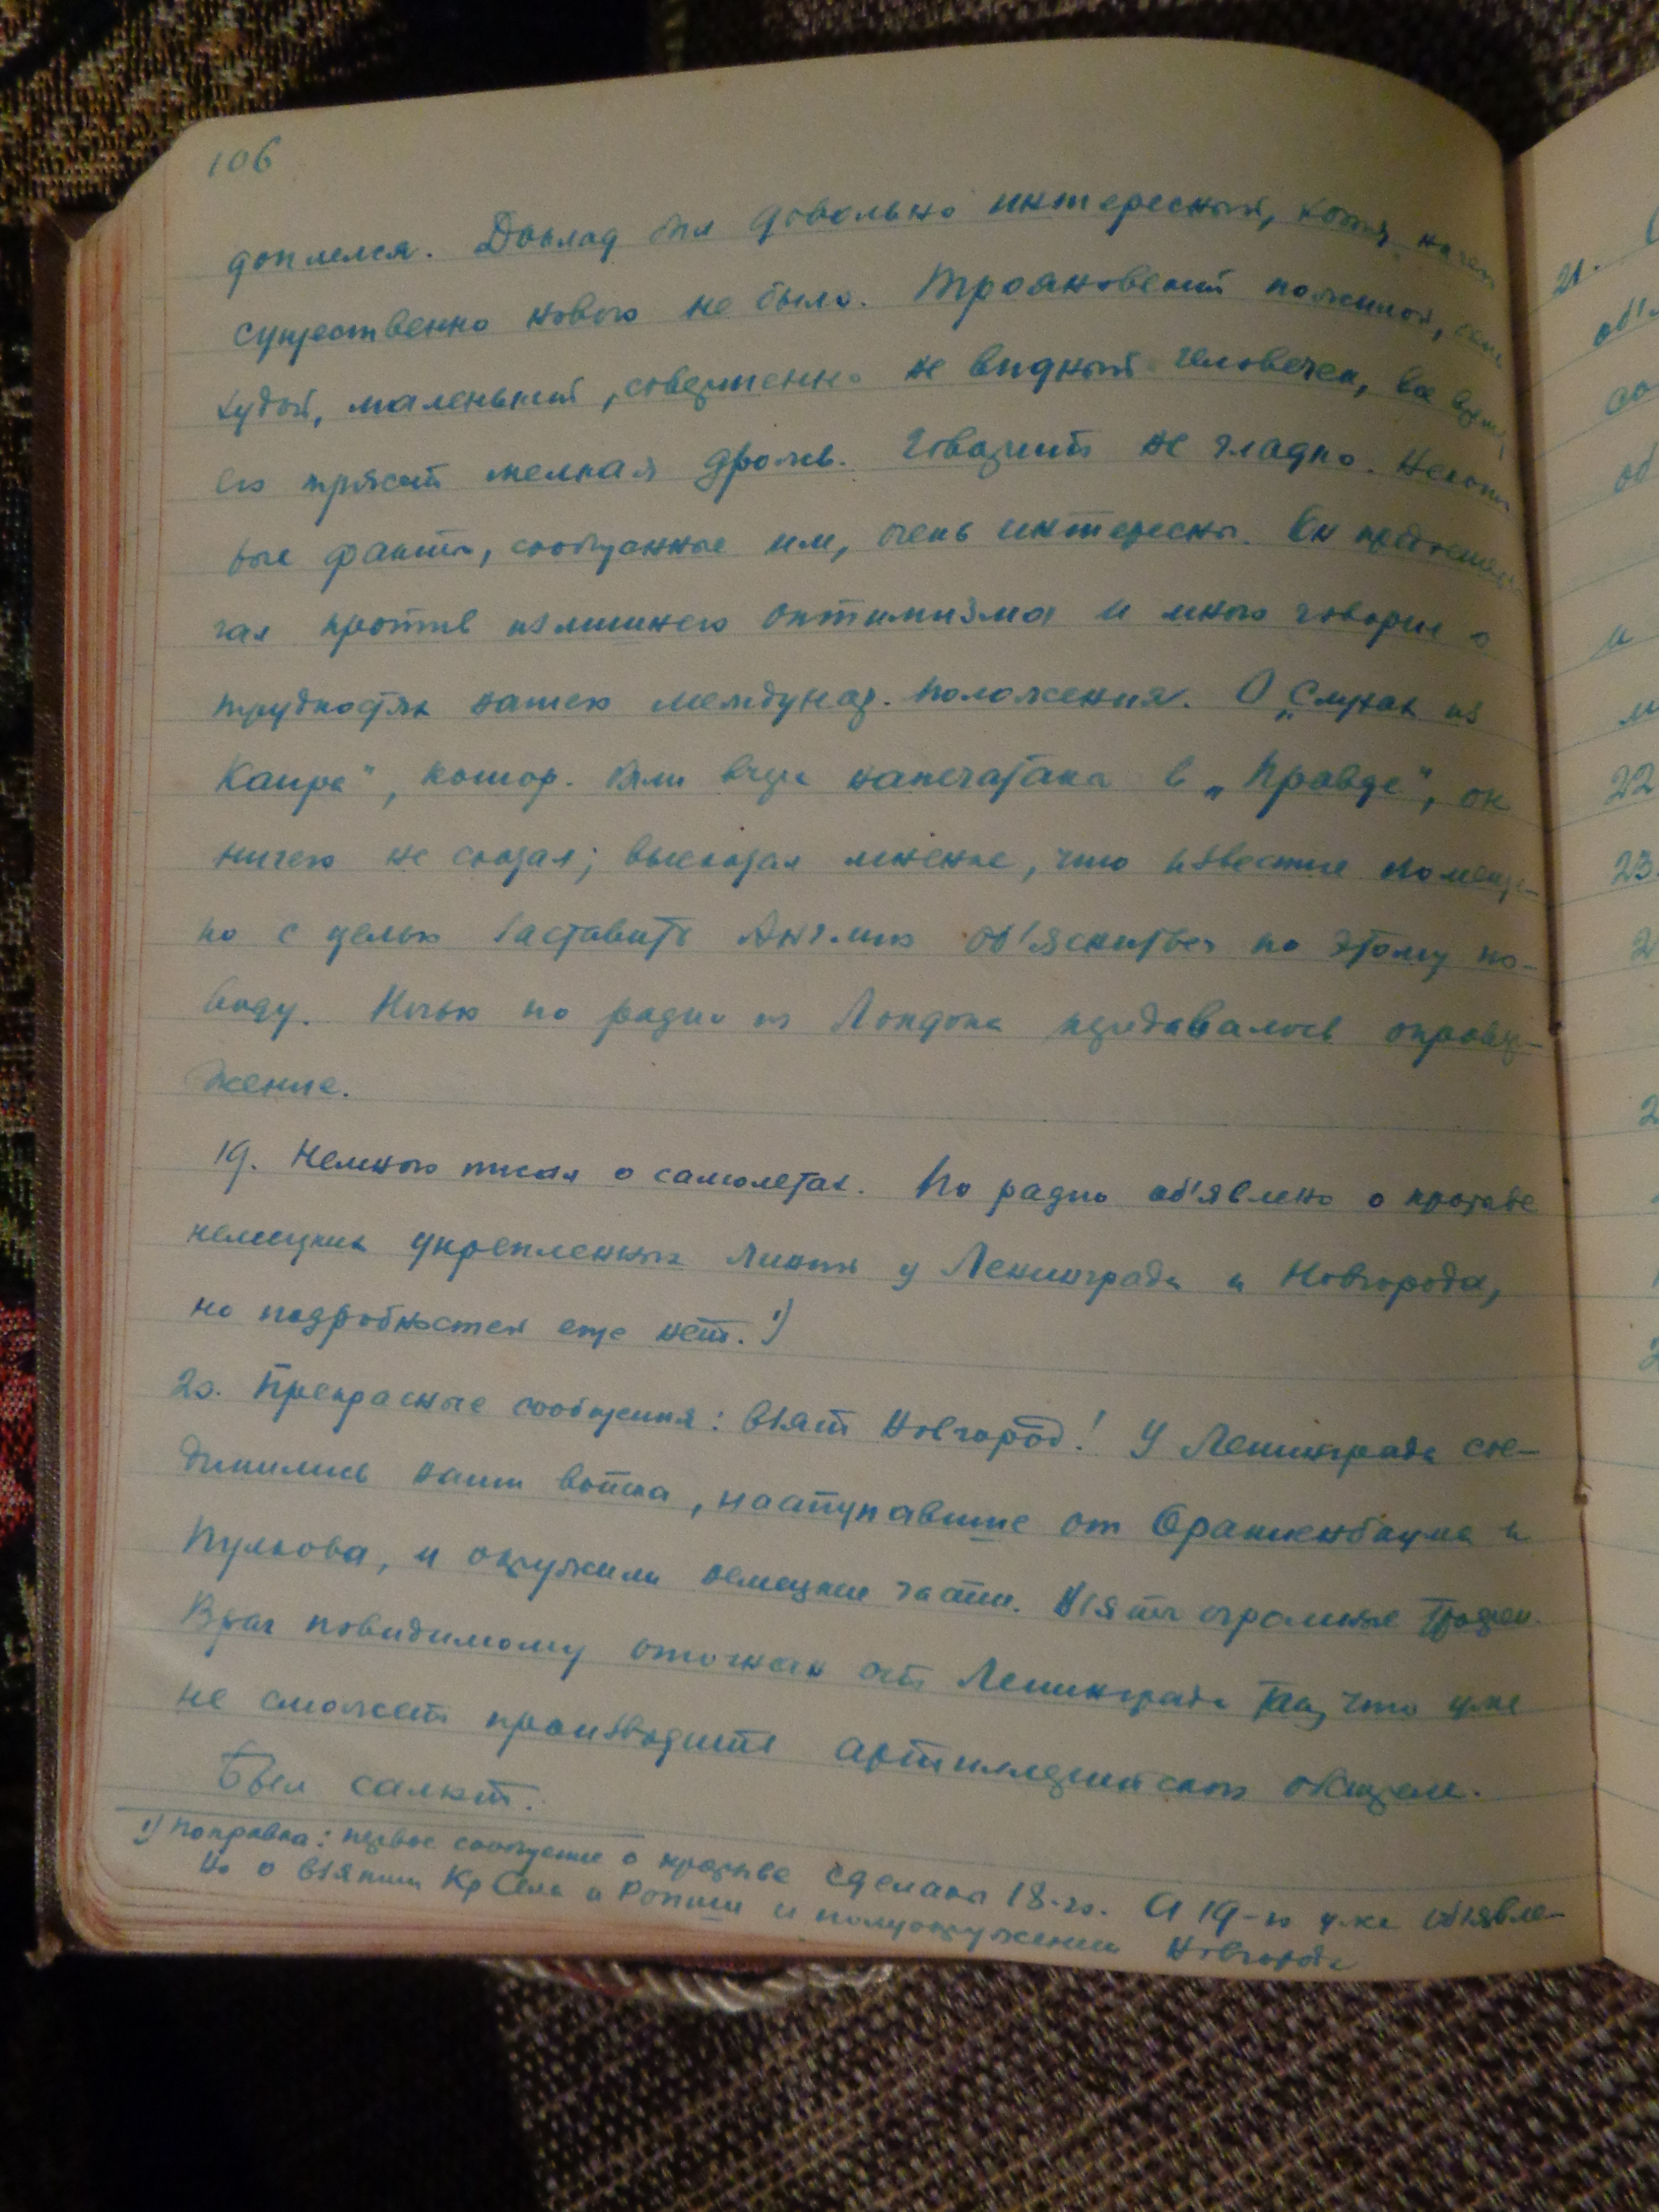 106
доплелся. Доклад был довольно интересный, хотя ничего
существенно нового не было. Трояновский пожилой,
худой, маленький, совершенно не видный человечек, все время
его трясет мелкая дрожь. Говорит не гладко. Некото
рые факты, сообщенные им, очень интересны. Он предостере
гал против излишнего оптимизма и много говорил о
трудностях нашего междунар. положения. О „Слухах из
Каира", котор. были вчера напечатаны в „Правде", он
ничего не сказал; высказал мнение, что известие помеще-
но с целью заставить Англию об'ясниться по этому по-
воду. Ночью по радио из Лондона передавалось опровер-
жение.
19. Немного писал о самолетах. По радио об'явлено о прорыве
немецких укрепленных линий у Ленинграда и Новгорода,
но подробностей еще нет. 1)
20. Прекрасные сообщения: взят Новгород! У Ленинграда сое-
динились наши войска, наступавшие от Ораниенбаума и
Пулкова, и окружили немецкие части. Взяты огромные трофеи.
Враг повидимому отогнан от Ленинграда так, что уже
не сможет производить артиллерийский обстрел.
Был салют.
1) Поправка: первое сообщение о прорыве сделано 18-го. А 19-го уже об'явле-
но о взятии Кр Села и Ропши и полуокружении Новгорода
21.
об'я
со
об
и
22
23.
2
2